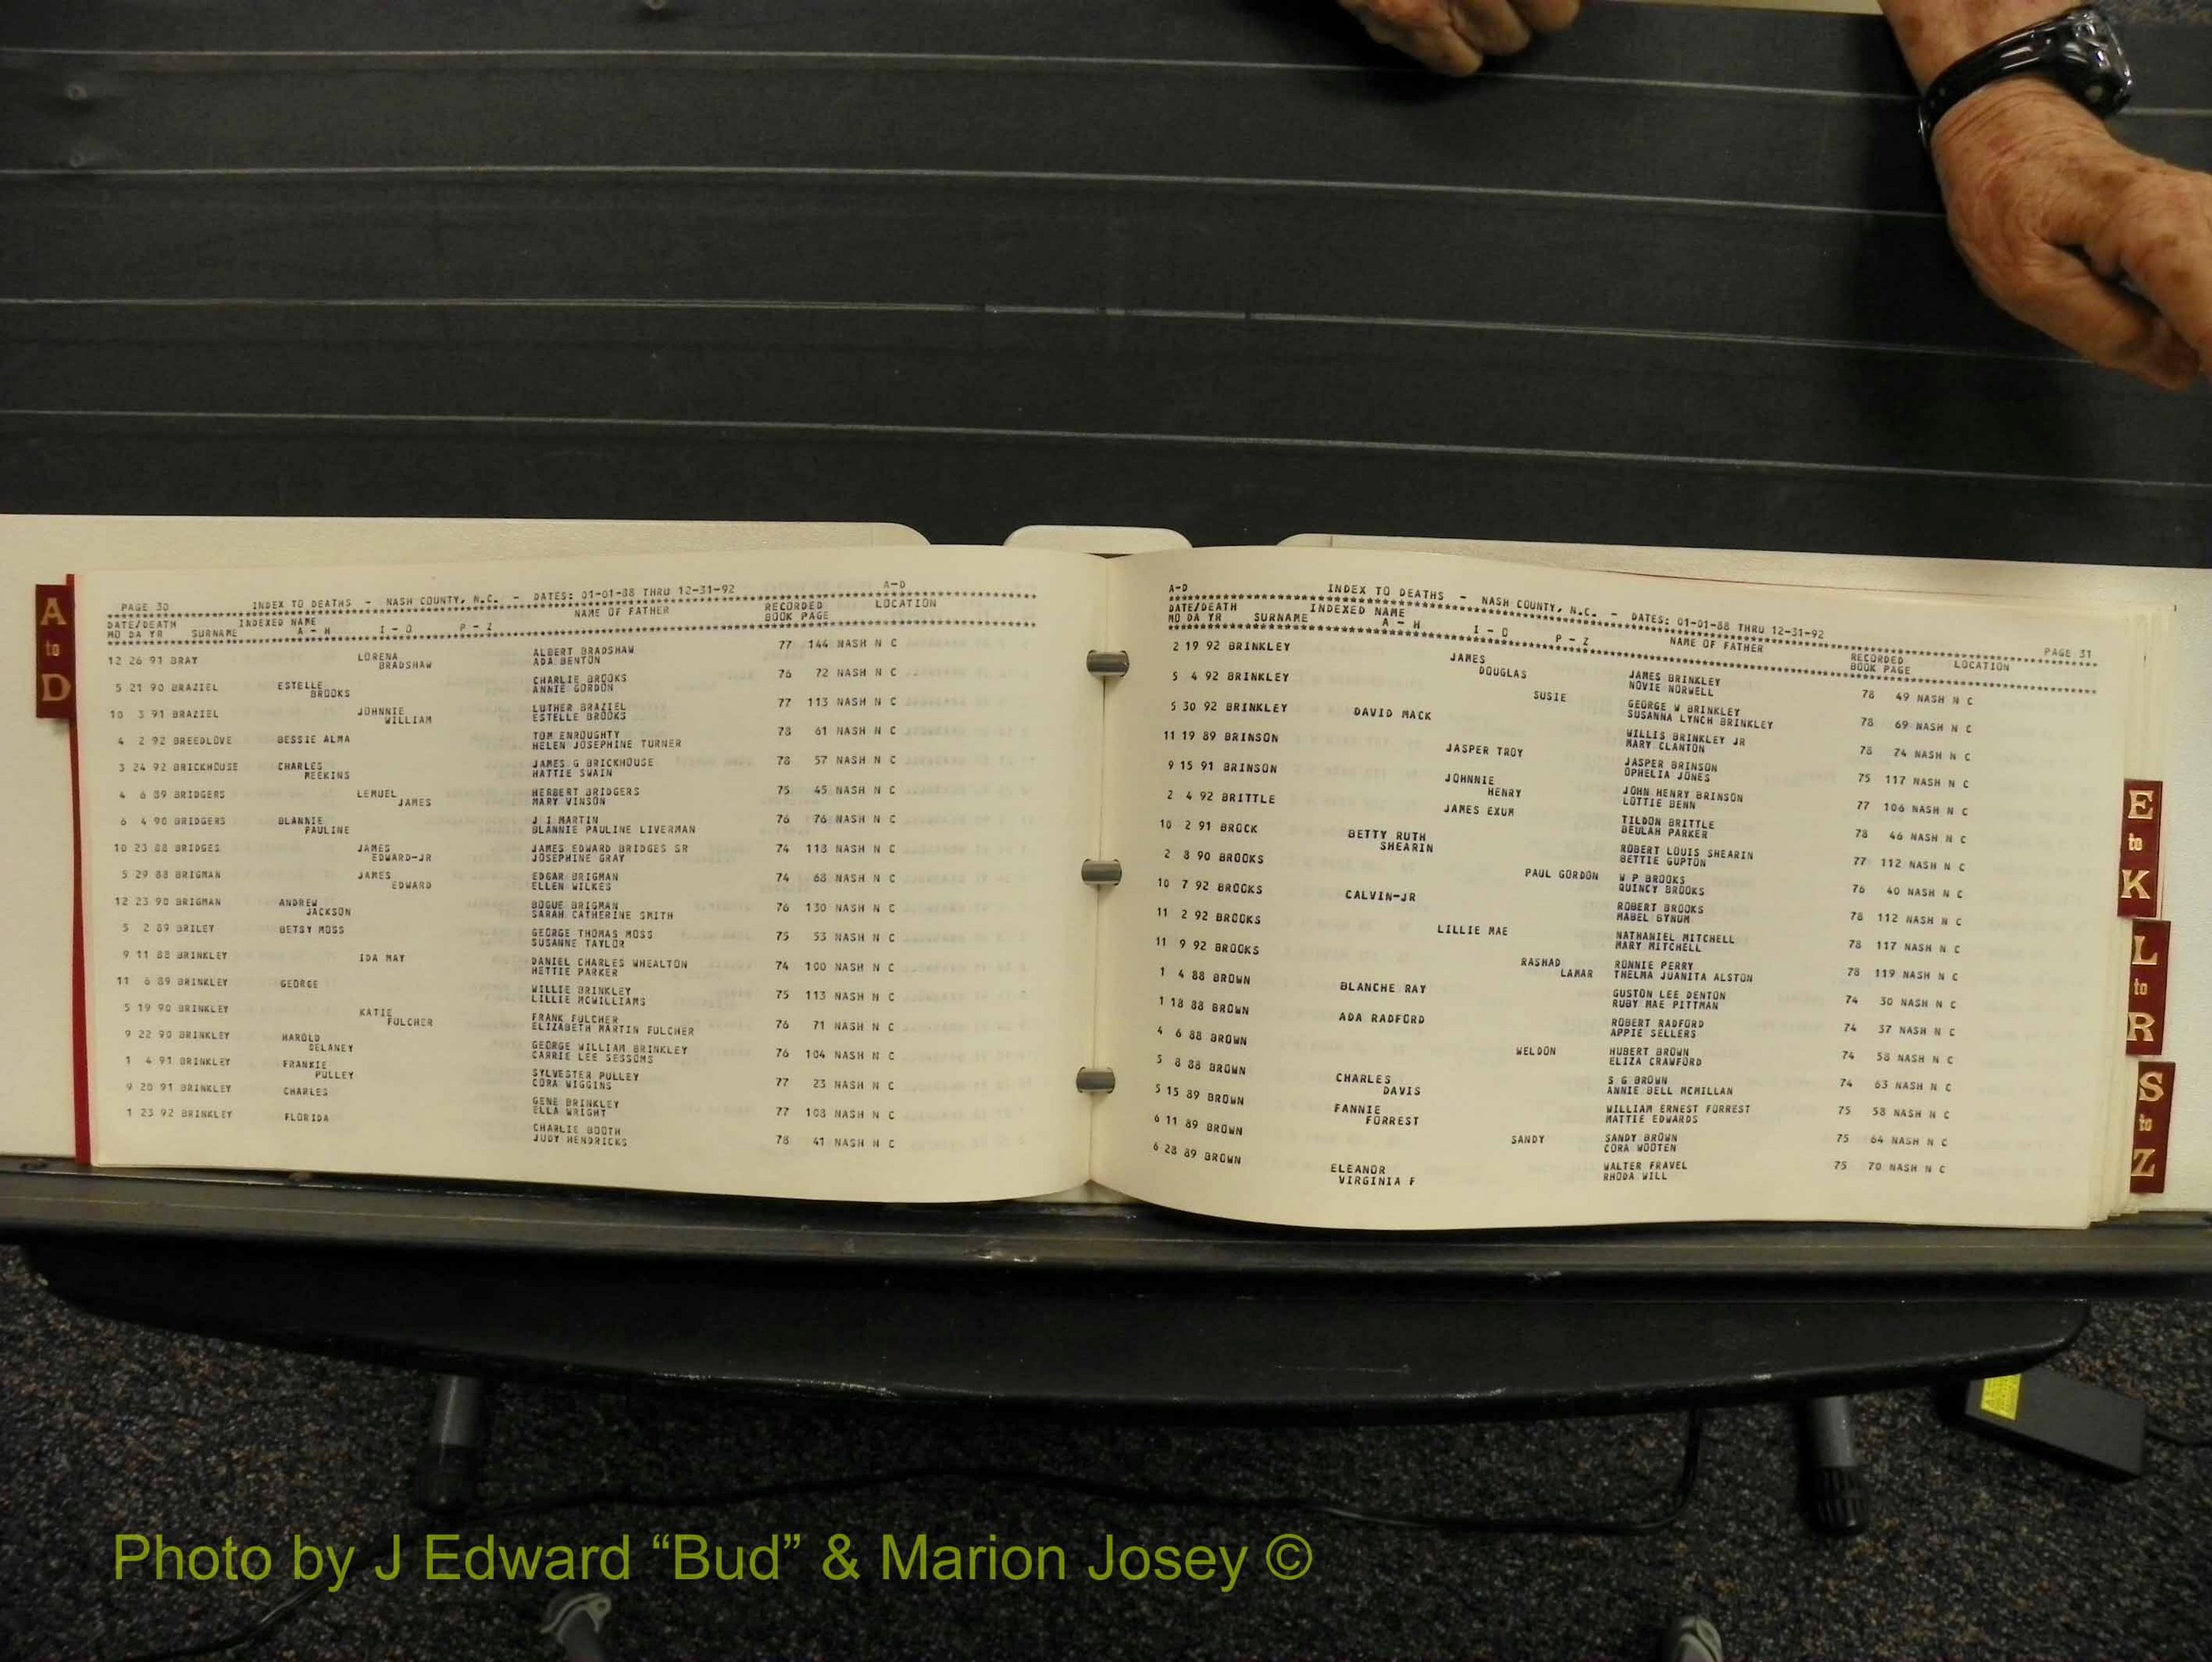 A
to
D
PAGE 30 INDEX TO DEATHS - NASH COUNTY, N.C. - DATES: 01-01-88 THRU 12-31-92 A-D
DATE/DEATH INDEXED NAME NAME OF FATHER RECORDED LOCATION
MO DA YR SURNAME A - H I - O P - Z BOOK PAGE
12 26 91 BRAY LORENA ALBERT BRADSHAW 77 144 NASH N C
BRADSHAW ADA BENTON
5 21 90 BRAZIEL ESTELLE CHARLIE BROOKS 76 72 NASH N C
BROOKS ANNIE GORDON
10 3 91 BRAZIEL JOHNNIE LUTHER BRAZIEL 77 113 NASH N C
WILLIAM ESTELLE BROOKS
4 2 92 BREEDLOVE BESSIE ALMA TOM ENROUGHTY 78 61 NASH N C
HELEN JOSEPHINE TURNER
3 24 92 BRICKHOUSE CHARLES JAMES G BRICKHOUSE 78 57 NASH N C
MEEKINS HATTIE SWAIN
4 6 89 BRIDGERS LEMUEL HERBERT BRIDGERS 75 45 NASH N C
JAMES MARY VINSON
6 4 90 BRIDGERS BLANNIE J I MARTIN 76 76 NASH N C
PAULINE BLANNIE PAULINE LIVERMAN
10 23 88 BRIDGES JAMES JAMES EDWARD BRIDGES SR 74 118 NASH N C
EDWARD-JR JOSEPHINE GRAY
5 29 88 BRIGMAN JAMES EDGAR BRIGMAN 74 68 NASH N C
EDWARD ELLEN WILKES
12 23 90 BRIGMAN ANDREW BOGUE BRIGMAN 76 130 NASH N C
JACKSON SARAH CATHERINE SMITH
5 2 89 BRILEY BETSY MOSS GEORGE THOMAS MOSS 75 53 NASH N C
SUSANNE TAYLOR
9 11 88 BRINKLEY IDA MAY DANIEL CHARLES WHEALTON 74 100 NASH N C
HETTIE PARKER
11 6 89 BRINKLEY GEORGE WILLIE BRINKLEY 75 113 NASH N C
LILLIE MCWILLIAMS
5 19 90 BRINKLEY KATIE FRANK FULCHER 76 71 NASH N C
FULCHER ELIZABETH MARTIN FULCHER
9 22 90 BRINKLEY HAROLD GEORGE WILLIAM BRINKLEY 76 104 NASH N C
DELANEY CARRIE LEE SESSOMS
1 4 91 BRINKLEY FRANKIE SYLVESTER PULLEY 77 23 NASH N C
PULLEY CORA WIGGINS
9 20 91 BRINKLEY CHARLES GENE BRINKLEY 77 108 NASH N C
ELLA WRIGHT
1 23 92 BRINKLEY FLORIDA CHARLIE BOOTH 78 41 NASH N C
JUDY HENDRICKS
A-D INDEX TO DEATHS - NASH COUNTY, N.C. - DATES: 01-01-88 THRU 12-31-92 PAGE 31
DATE/DEATH INDEXED NAME NAME OF FATHER RECORDED LOCATION
MO DA YR SURNAME A - H I - O P - Z BOOK PAGE
2 19 92 BRINKLEY JAMES JAMES BRINKLEY 78 49 NASH N C
DOUGLAS NOVIE NORWELL
5 4 92 BRINKLEY SUSIE GEORGE W BRINKLEY 78 69 NASH N C
SUSANNA LYNCH BRINKLEY
5 30 92 BRINKLEY DAVID MACK WILLIS BRINKLEY JR 78 74 NASH N C
MARY CLANTON
11 19 89 BRINSON JASPER TROY JASPER BRINSON 75 117 NASH N C
OPHELIA JONES
9 15 91 BRINSON JOHNNIE JOHN HENRY BRINSON 77 106 NASH N C
HENRY LOTTIE BENN
2 4 92 BRITTLE JAMES EXUM TILDON BRITTLE 78 46 NASH N C
BEULAH PARKER
10 2 91 BROCK BETTY RUTH ROBERT LOUIS SHEARIN 77 112 NASH N C
SHEARIN BETTIE GUPTON
2 8 90 BROOKS PAUL GORDON W P BROOKS 76 40 NASH N C
QUINCY BROOKS
10 7 92 BROOKS CALVIN-JR ROBERT BROOKS 78 112 NASH N C
MABEL BYNUM
11 2 92 BROOKS LILLIE MAE NATHANIEL MITCHELL 78 117 NASH N C
MARY MITCHELL
11 9 92 BROOKS RASHAD RONNIE PERRY 78 119 NASH N C
LAMAR THELMA JUANITA ALSTON
1 4 88 BROWN BLANCHE RAY GUSTON LEE DENTON 74 30 NASH N C
RUBY MAE PITTMAN
1 18 88 BROWN ADA RADFORD ROBERT RADFORD 74 37 NASH N C
APPIE SELLERS
4 6 88 BROWN WELDON HUBERT BROWN 74 58 NASH N C
ELIZA CRAWFORD
5 8 88 BROWN CHARLES S G BROWN 74 63 NASH N C
DAVIS ANNIE BELL MCMILLAN
5 15 89 BROWN FANNIE WILLIAM ERNEST FORREST 75 58 NASH N C
FORREST MATTIE EDWARDS
6 11 89 BROWN SANDY SANDY BROWN 75 64 NASH N C
CORA WOOTEN
6 28 89 BROWN ELEANOR WALTER FRAVEL 75 70 NASH N C
VIRGINIA F RHODA WILL
E
to
K
L
to
R
S
to
Z
Photo by J Edward “Bud” & Marion Josey ©